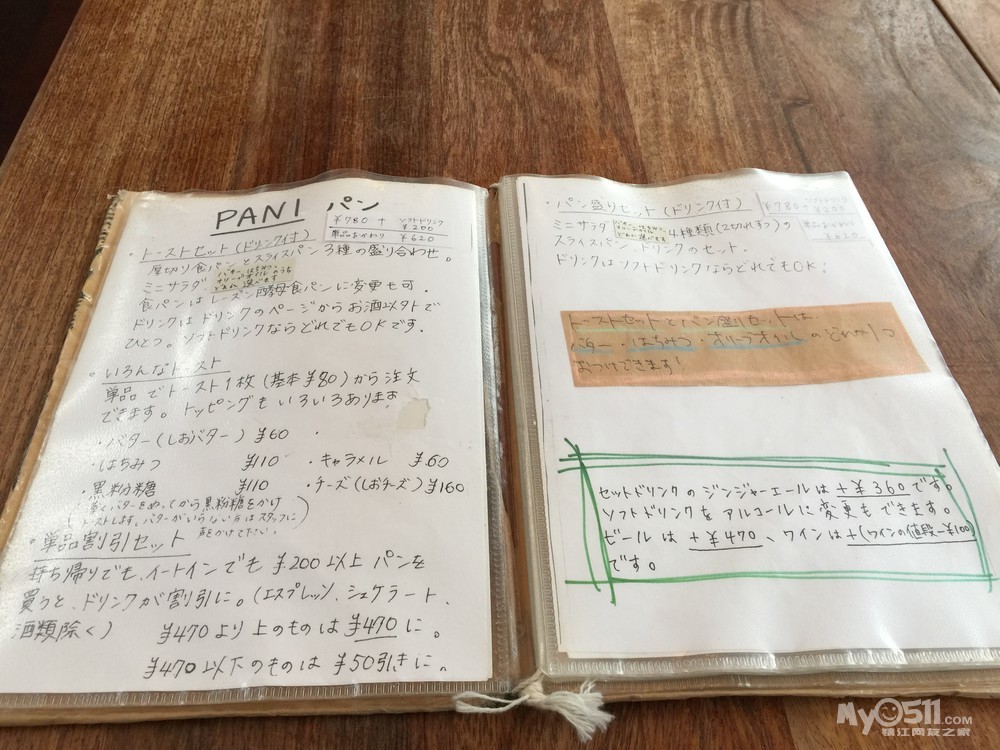 PANI パン
¥780+ ソフトドリンク ¥200
単品おかわり ¥620
・トーストセット(ドリンク付)
厚切り食パンとスライスパン3種の盛り合わせ。
ミニサラダ バター・はちみつ・オリーブオイルのうち
どれか選べます
食パンはレーズン酵母食パンに変更も可.
ドリンクはドリンクのページからお酒以外で
ひとつ。ソフトドリンクならどれでもOKです.
・いろんなトースト
単品でトースト1枚(基本¥80)から注文
できます。トッピングもいろいろあります
・バター(しおバター) ¥60 ・
・はちみつ ¥110 ・キャラメル ¥60
・黒粉分糖 ¥110 ・チーズ(しおチーズ) ¥160
(軽くバターをぬってから黒粉糖をかけ
トーストします。バターがいらない方はスタッフに)
声をかけて下さい.
・単品割引セット
持ち帰りでも、イートインでも ¥200以上 パンを
買うと、ドリンクが割引に。(エスプレッソ、シェケラート、
酒類除く) ¥470より上のものは ¥470に。
¥470以下のものは ¥50引きに。
・パン盛りセット(ドリンク付)
¥780+ ソフトドリンク
単品おかわり ¥620
ミニサラダ 4種類(2切れずつ)の
スライスパン ドリンクのセット.
ドリンクはソフトドリンクならどれでもOK!
トーストセットとパン盛りセットは
バター・はちみつ・オリーブオイルのどれか1つ
おつけできます!
セットドリンクのジンジャーエールは+¥360です。
ソフトドリンクをアルコールに変更もできます。
ビールは+¥470、ワインは+(ワインの値段-¥100)
です。
My0511.COM
镇江网友之家